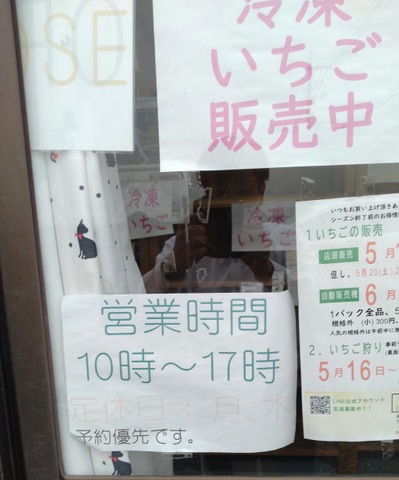 OSE
冷凍
いちご
販売中
冷凍
いちご
冷凍
いちご
営業時間
10時〜17時
定休日 月 水
予約優先です。
いつもお買い上げ頂きあ
シーズン終了前のお得情
1.いちごの販売
店頭販売 5月
但し、5月20(土)
自動販売機 6月
1パック全品、5
規格外 (小)300円、
人気の規格外は午前中に無
2.いちご狩り 事前
5月16日〜
LINE公式アカウント
友達募集中！！